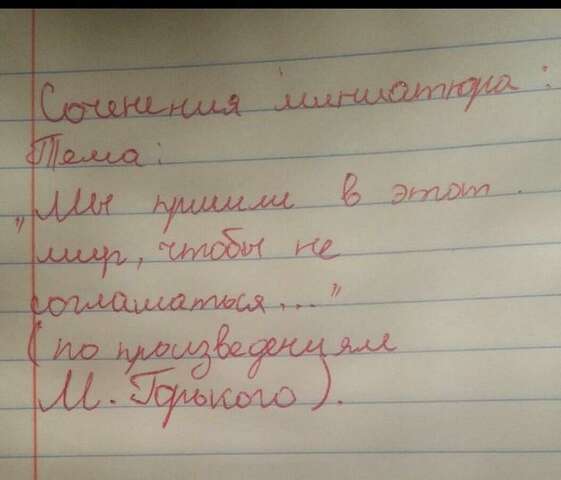 Соченения миниатюра:
Тема:
„Мы пришли в этот
мир, чтобы не
соглашаться..."
(по произведениям
М. Горького).